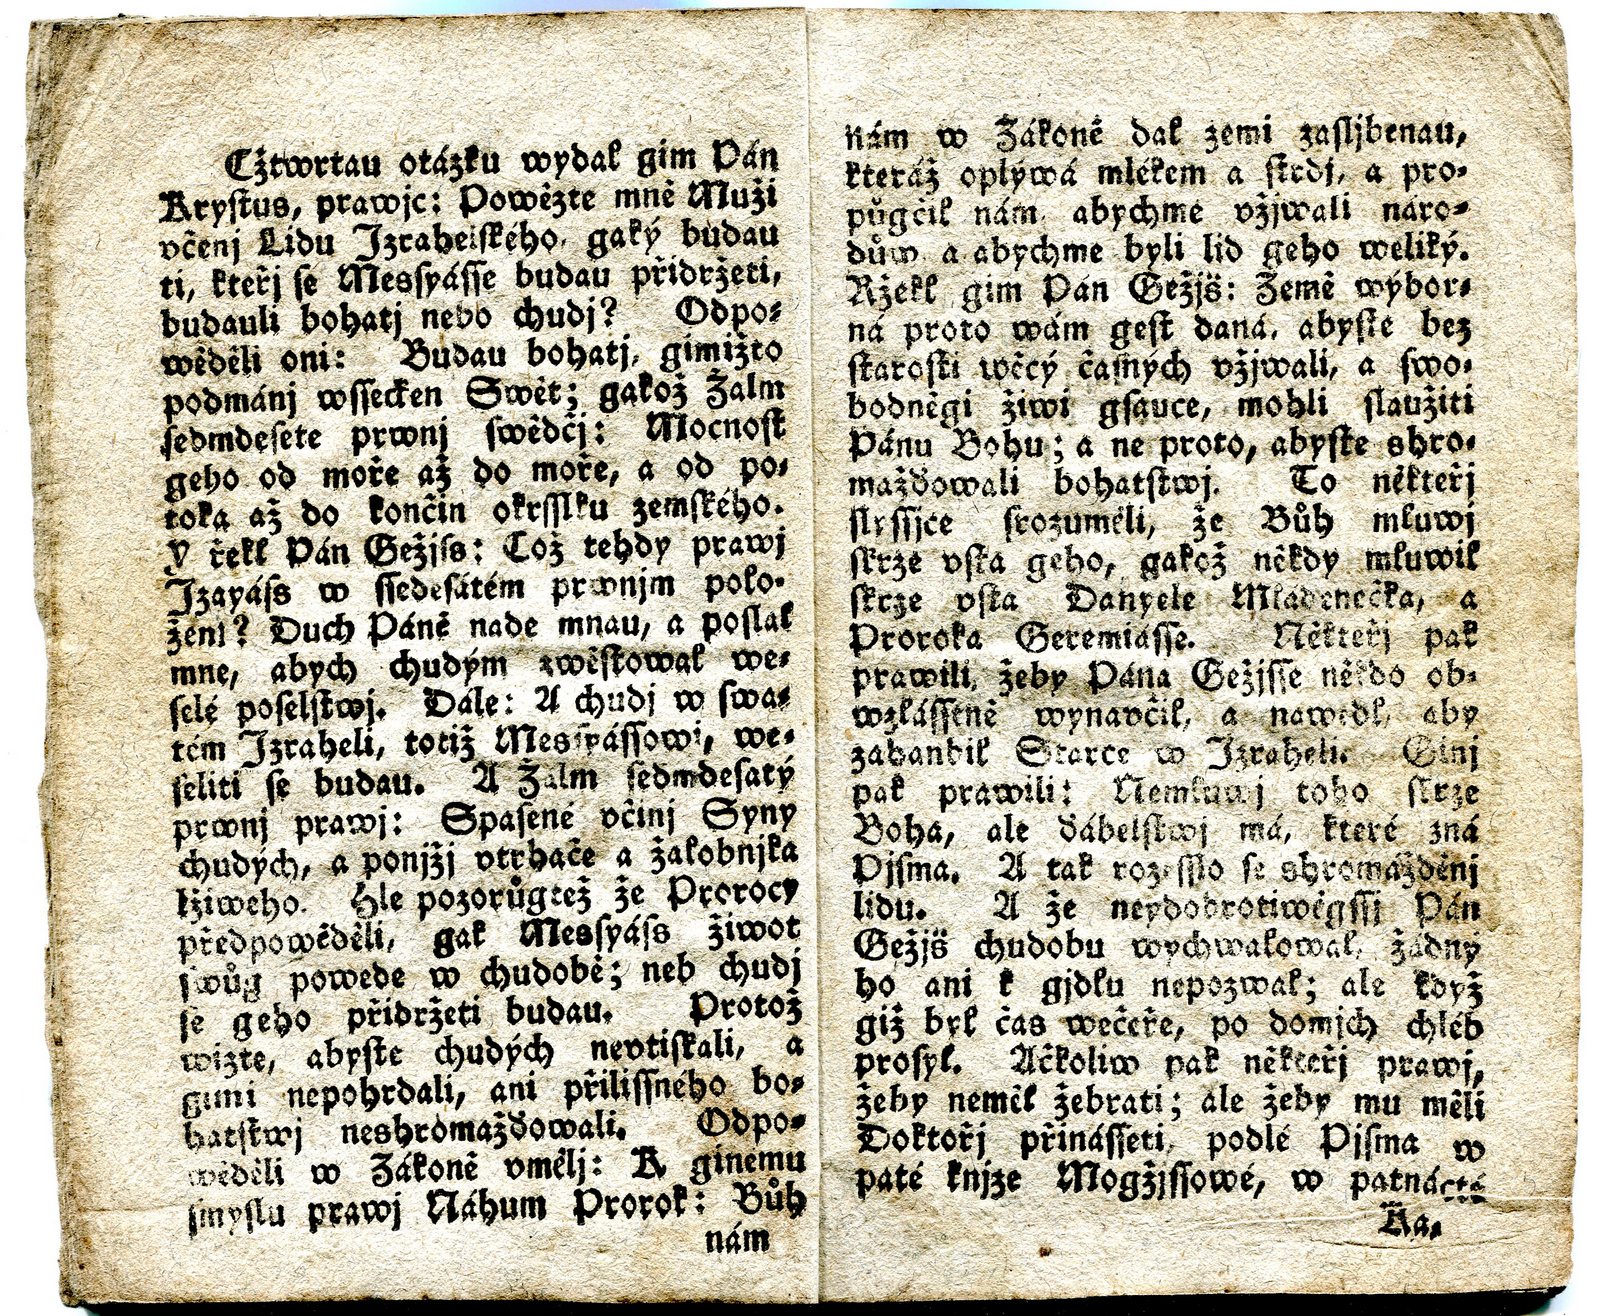 Cžtwrtau otázku wydal gim Pán
Krystus, prawjc: Powězte mně Muži
včenj Lidu Jzrahelského, gaký budau
ti, kteřj se Messyásse budau přidržeti,
budauli bohatj nebo chudj? Odpo-
wěděli oni: Budau bohatj, gimižto
podmánj wssecken Swět; gakož Žalm
sedmdesete prwnj swědčj: Mocnost
geho od moře až do moře, a od po-
toka až do končin okrsslku zemského.
Y řekl Pán Gežjss: Což tehdy prawj
Jzayáss w ssedesátém prwnjm polo-
ženj? Duch Páně nade mnau, a poslal
mne, abych chudým zwěstowal we-
selé poselstwj. Dále: A chudj w swa-
tém Jzraheli, totiž Messyássowi, we-
seliti se budau. A Žalm sedmdesatý
prwnj prawj: Spasené včinj Syny
chudých, a ponjžj vtrhače a žalobnjka
lžiweho. Hle pozorůgtež že Prorocy
předpowěděli, gak Messyáss žiwot
swůg powede w chudobě; neb chudj
se geho přidržeti budau. Protož
wizte, abyste chudých nevtiskali, a
gimi nepohrdali, ani přilissného bo-
hatstwj neshromažďowali. Odpo-
wěděli w Zákoně vmělj: K ginemu
smyslu prawj Náhum Prorok: Bůh
nám
nám w Zákoně dal zemi zasljbenau,
kteráž oplýwá mlékem a strdj, a pro-
půgčil nám, abychme vžjwali náro-
důw a abychme byli lid geho weliký.
Ržekl gim Pán Gežjš: Země wýbor-
ná proto wám gest daná, abyste bez
starosti wěcý časných vžjwali, a swo-
bodněgi žiwi gsauce, mohli slaužiti
Pánu Bohu; a ne proto, abyste shro-
mažďowali bohatstwj. To někteřj
slyssjce srozuměli, že Bůh mluwj
skrze vsta geho, gakož někdy mluwil
skrze vsta Danyele Mládenečka, a
Proroka Geremiásse. Někteřj pak
prawili, žeby Pána Gežjsse někdo ob-
wzlásstně wynavčil, a nawedl, aby
zahanbil Starce w Jzraheli. Ginj
pak prawili: Nemluwj toho skrze
Boha, ale ďábelstwj má, které zná
Pjsma. A tak rozesslo se shromážděnj
lidu. A že neydobrotiwěgssj Pán
Gežjš chudobu wychwalowal, žádný
ho ani k gjdlu nepozwal; ale když
giž byl čas wečeře, po domjch chléb
prosyl. Ačkoliw pak někteřj prawj,
žeby neměl žebrati; ale žeby mu měli
Doktořj přinásseti, podlé Pjsma w
paté knjze Mogžjssowé, w patnácté
Ka-